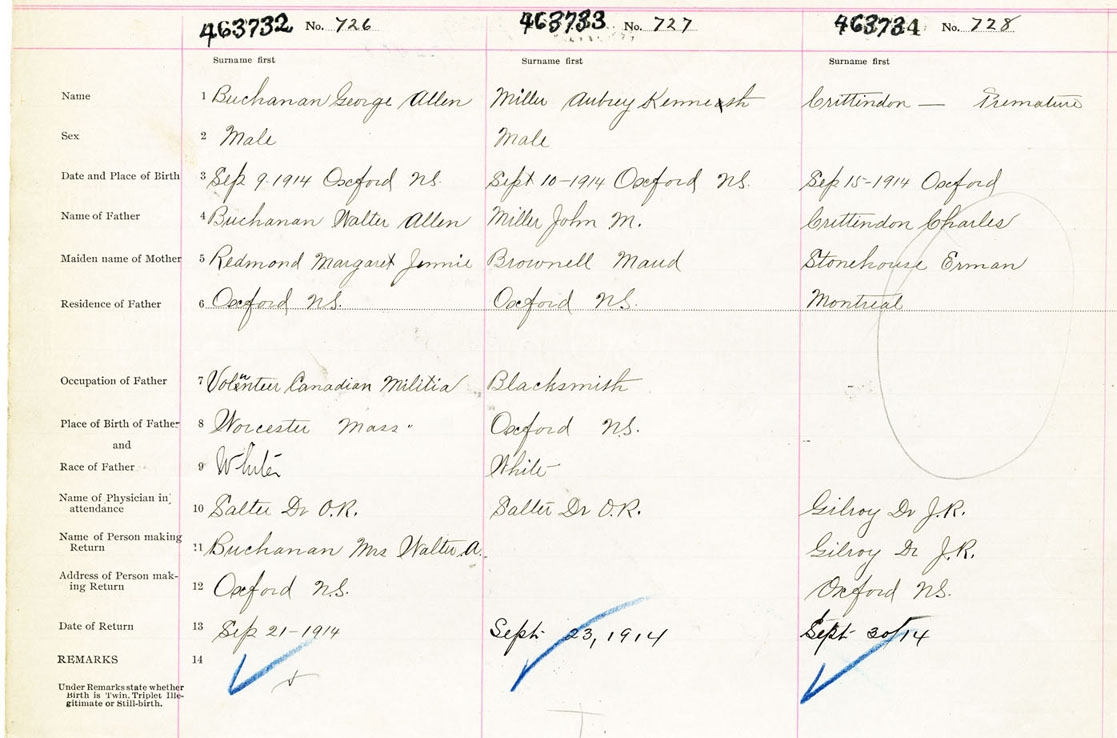 463732 No. 726 463733 No. 727 463734 No. 728
Surname first Surname first Surname first
Name 1 Buchanan George Allen Miller Aubrey Crittindon — Premature
Sex 2 Male Male
Date and Place of Birth 3 Sep 9. 1914 Oxford N.S. Sept 10-1914 Oxford N.S. Sep 15-1914 Oxford
Name of Father 4 Buchanan Walter Allen Miller John M. Crittendon Charles
Maiden name of Mother 5 Redmond Margaret Jennie Brownell Maud Stonehouse Erman
Residence of Father 6 Oxford N.S. Oxford N.S. Montreal
Occupation of Father 7 Volunteer Canadian Militia Blacksmith
Place of Birth of Father 8 Worcester Mass" Oxford N.S.
and
Race of Father 9 White White
Name of Physician in
attendance 10 Salter Dr O.R. Salter Dr O.R. Gilroy Dr J.R.
Name of Person making
Return 11 Buchanan Mrs Walter A. Gilroy Dr J.R.
Address of Person mak-
ing Return 12 Oxford N.S. Oxford N.S.
Date of Return 13 Sep 21-1914 Sept 23, 1914 Sept 30/14
REMARKS 14
Under Remarks state whether
Birth is Twin, Triplet Ille-
gitimate or Still-birth.